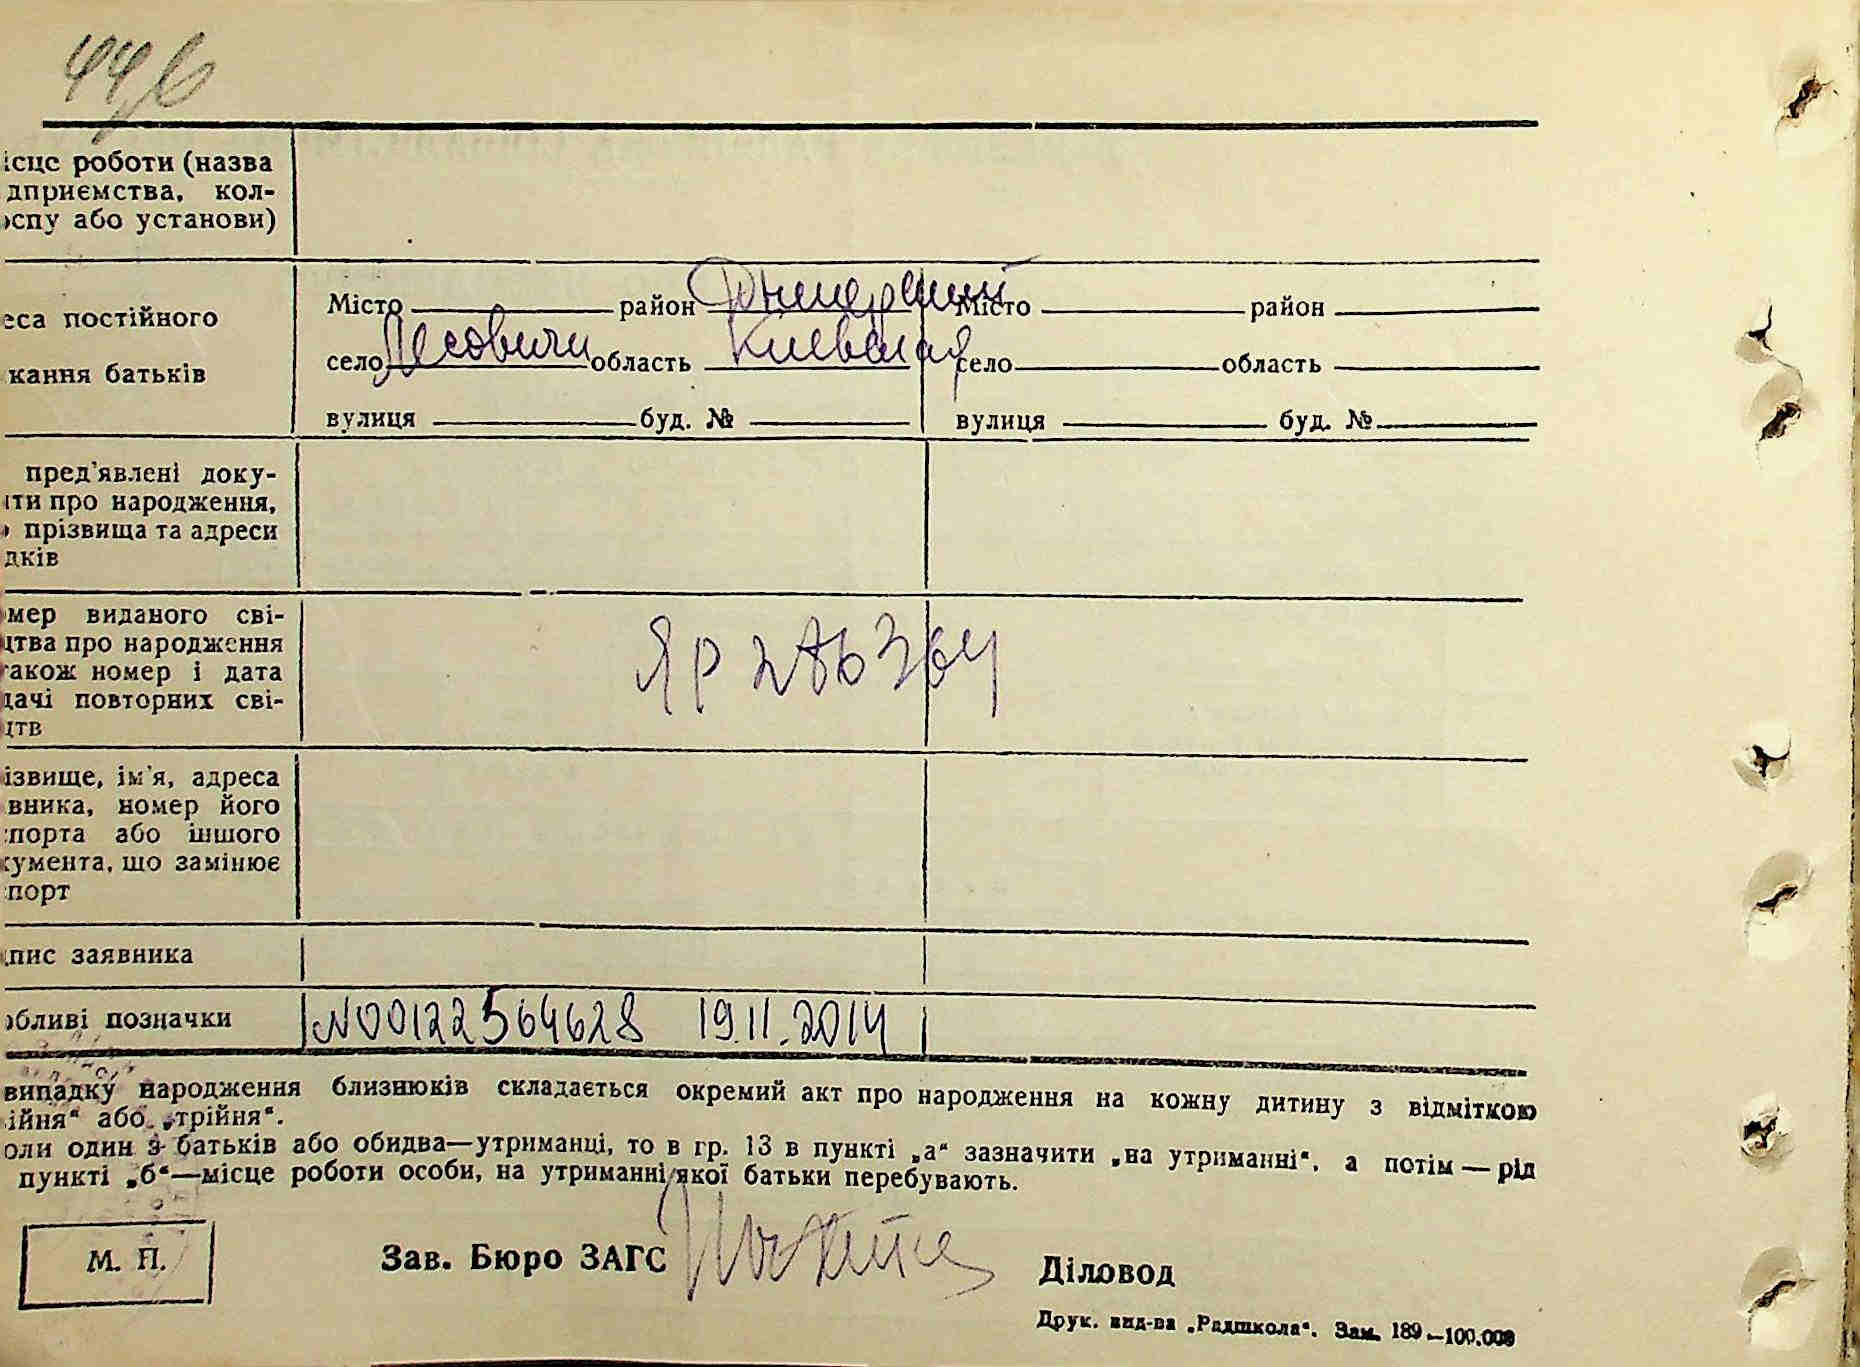 446
ісце роботи (назва
дприємства, кол-
оспу або установи)
Місто район Дымерский Місто район
еса постійного
село Лесовичи область Киевская село область
кання батьків
вулиця буд. № вулиця буд. №
пред'явлені доку-
нти про народження,
о прізвища та адреси
дків
мер виданого сві-
цтва про народження
також номер і дата
дачі повторних сві-
цтв
ЯР 286364
ізвище, ім'я, адреса
вника, номер його
спорта або іншого
кумента, що замінює
спорт
дпис заявника
обливі позначки N00122564628 19.11.2014
випадку народження близнюків складається окремий акт про народження на кожну дитину з відміткою
ійня“ або „трійня“.
оли один з батьків або обидва—утриманці, то в гр. 13 в пункті „а“ зазначити „на утриманні“, а потім—рід
пункті „б“—місце роботи особи, на утриманні якої батьки перебувають.
М. П.
Зав. Бюро ЗАГС
Діловод
Друк. вид-ва „Радшкола“. Зам. 189—100.000